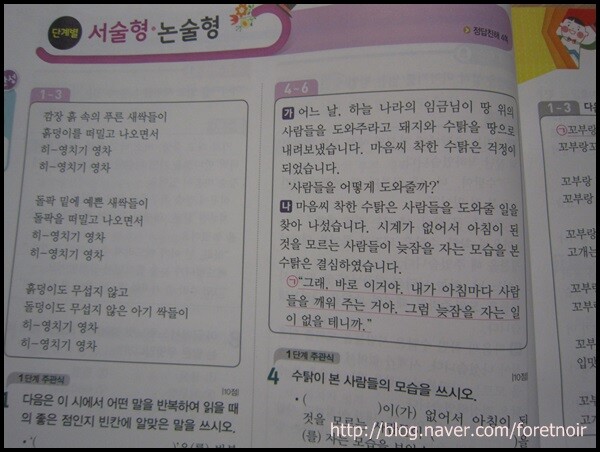 단계별 서술형·논술형
정답친해 4쪽
1-3
깜장 흙 속의 푸른 새싹들이
흙덩이를 떠밀고 나오면서
히-영치기 영차
히-영치기 영차
돌팍 밑에 예쁜 새싹들이
돌팍을 떠밀고 나오면서
히-영치기 영차
히-영치기 영차
흙덩이도 무섭지 않고
돌덩이도 무섭지 않은 아기 싹들이
히-영치기 영차
히-영치기 영차
1단계 주관식
[10점]
1 다음은 이 시에서 어떤 말을 반복하여 읽을 때
의 좋은 점인지 빈칸에 알맞은 말을 쓰시오.
4-6
가 어느 날, 하늘 나라의 임금님이 땅 위의
사람들을 도와주라고 돼지와 수탉을 땅으로
내려보냈습니다. 마음씨 착한 수탉은 걱정이
되었습니다.
'사람들을 어떻게 도와줄까?'
나 마음씨 착한 수탉은 사람들을 도와줄 일을
찾아 나섰습니다. 시계가 없어서 아침이 된
것을 모르는 사람들이 늦잠을 자는 모습을 본
수탉은 결심하였습니다.
㉠"그래, 바로 이거야. 내가 아침마다 사람
들을 깨워 주는 거야. 그럼 늦잠을 자는 일
이 없을 테니까."
1단계 주관식
[10점]
4 수탉이 본 사람들의 모습을 쓰시오.
• ( )이(가) 없어서 아침이 된
것을 모르는 ( )을
(를) 자는 모습을
1-3 다음
㉠꼬부랑
꼬부랑
꼬부랑
꼬부랑
고개는
꼬부랑
꼬부랑
http://blog.naver.com/foretnoir